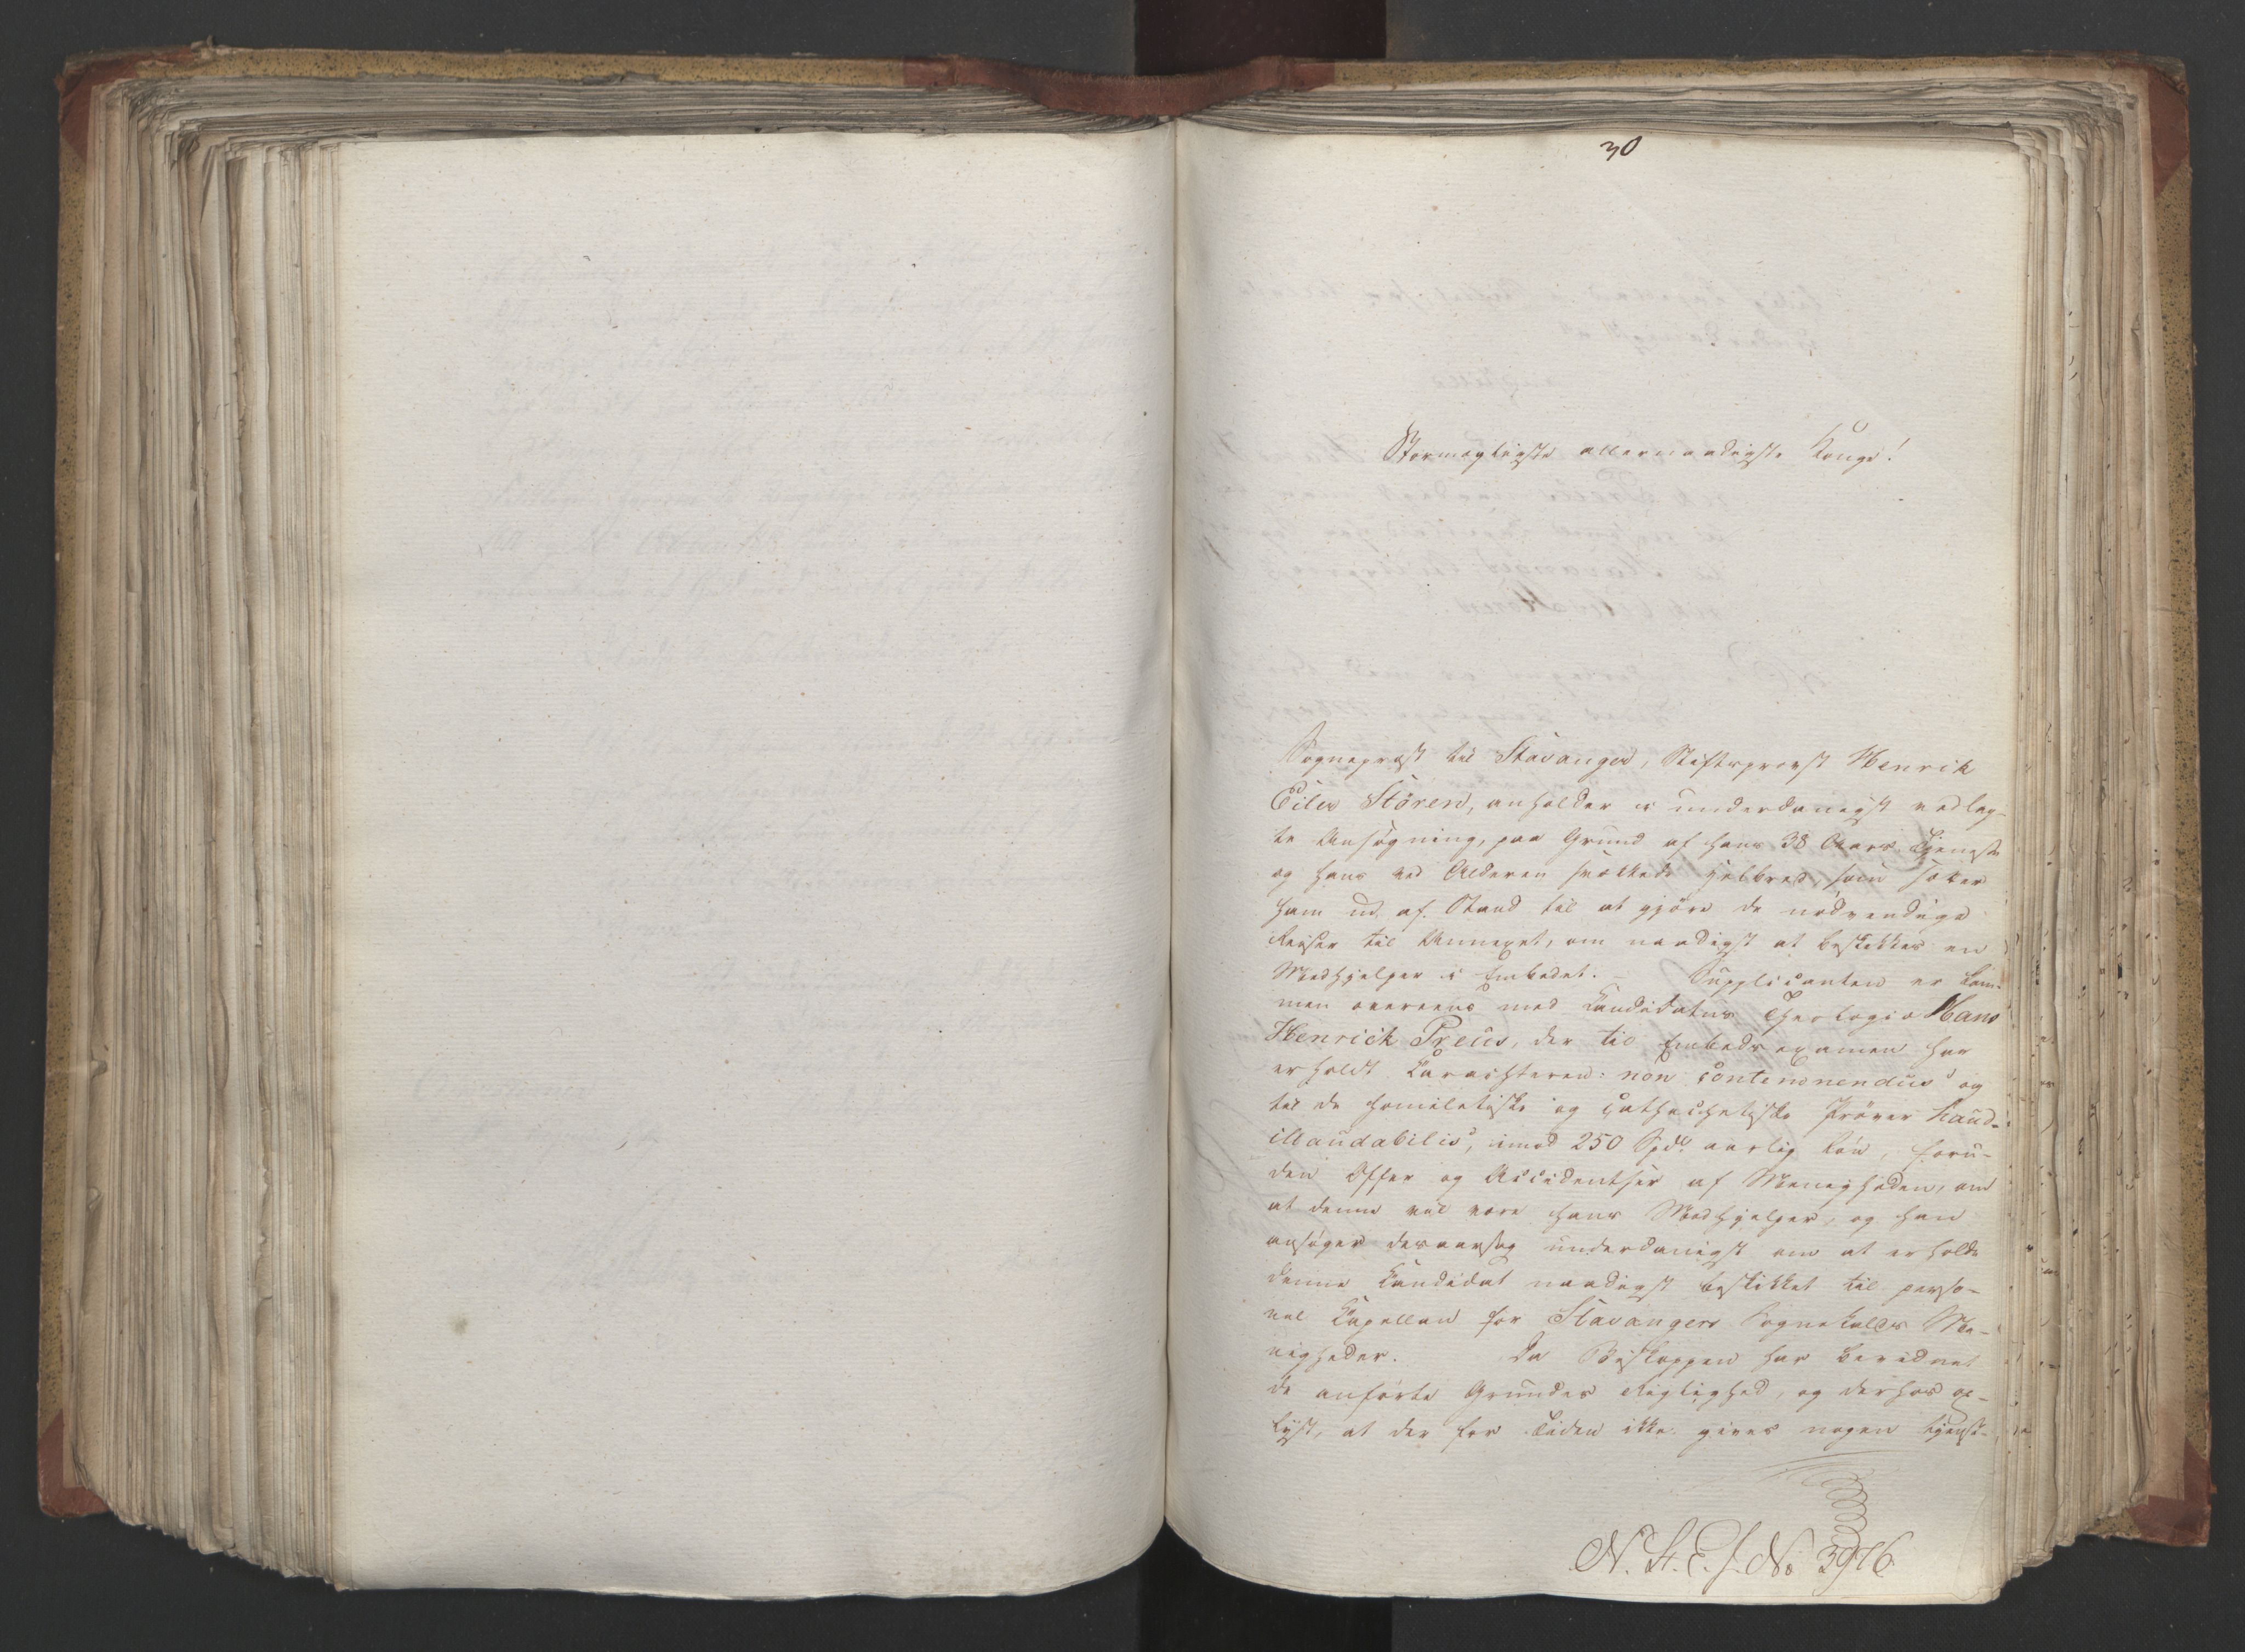 30
Stormægtigste allernaadigste Konge!
Sognepræst til Stavanger, Stiftsprovst Henrik
Eiler Stören, anholder i underdanigst vedlag-
te Ansøgning, paa Grund af hans 38 Aars Tjeneste
og hans ved Alderen svækkede Helbred, som sætter
ham ud af Stand til at gjöre de nödvendige
Reiser til Annexet, om naadigst at beskikkes en
Medhjelper i Embedet. – Supplicanten er kom-
men overeens med Candidatus Theologiæ Hans
Henrich Preus, der til Embedsexamen har
erholdt Carachteren: non contemnendus og
til de homiletiske og cathechetiske Pröver haud-
illaudabilis, imod 250 Spd. aarlig Lön, foru-
den Offer og Accidentser af Menigheden, om
at denne vil være hans Medhjelper, og han
ansöger desaarsag underdanigst om at erholde
denne Candidat naadigst beskikket til perso-
nel Capellan for Stavangers Sognekalds Me-
nigheder. Da Biskoppen har bevidnet
de anförte Grundes Rigtighed, og derhos op-
lyst, at der for Tiden ikke gives nogen tjenst-
N. St. E. J. No 3976.